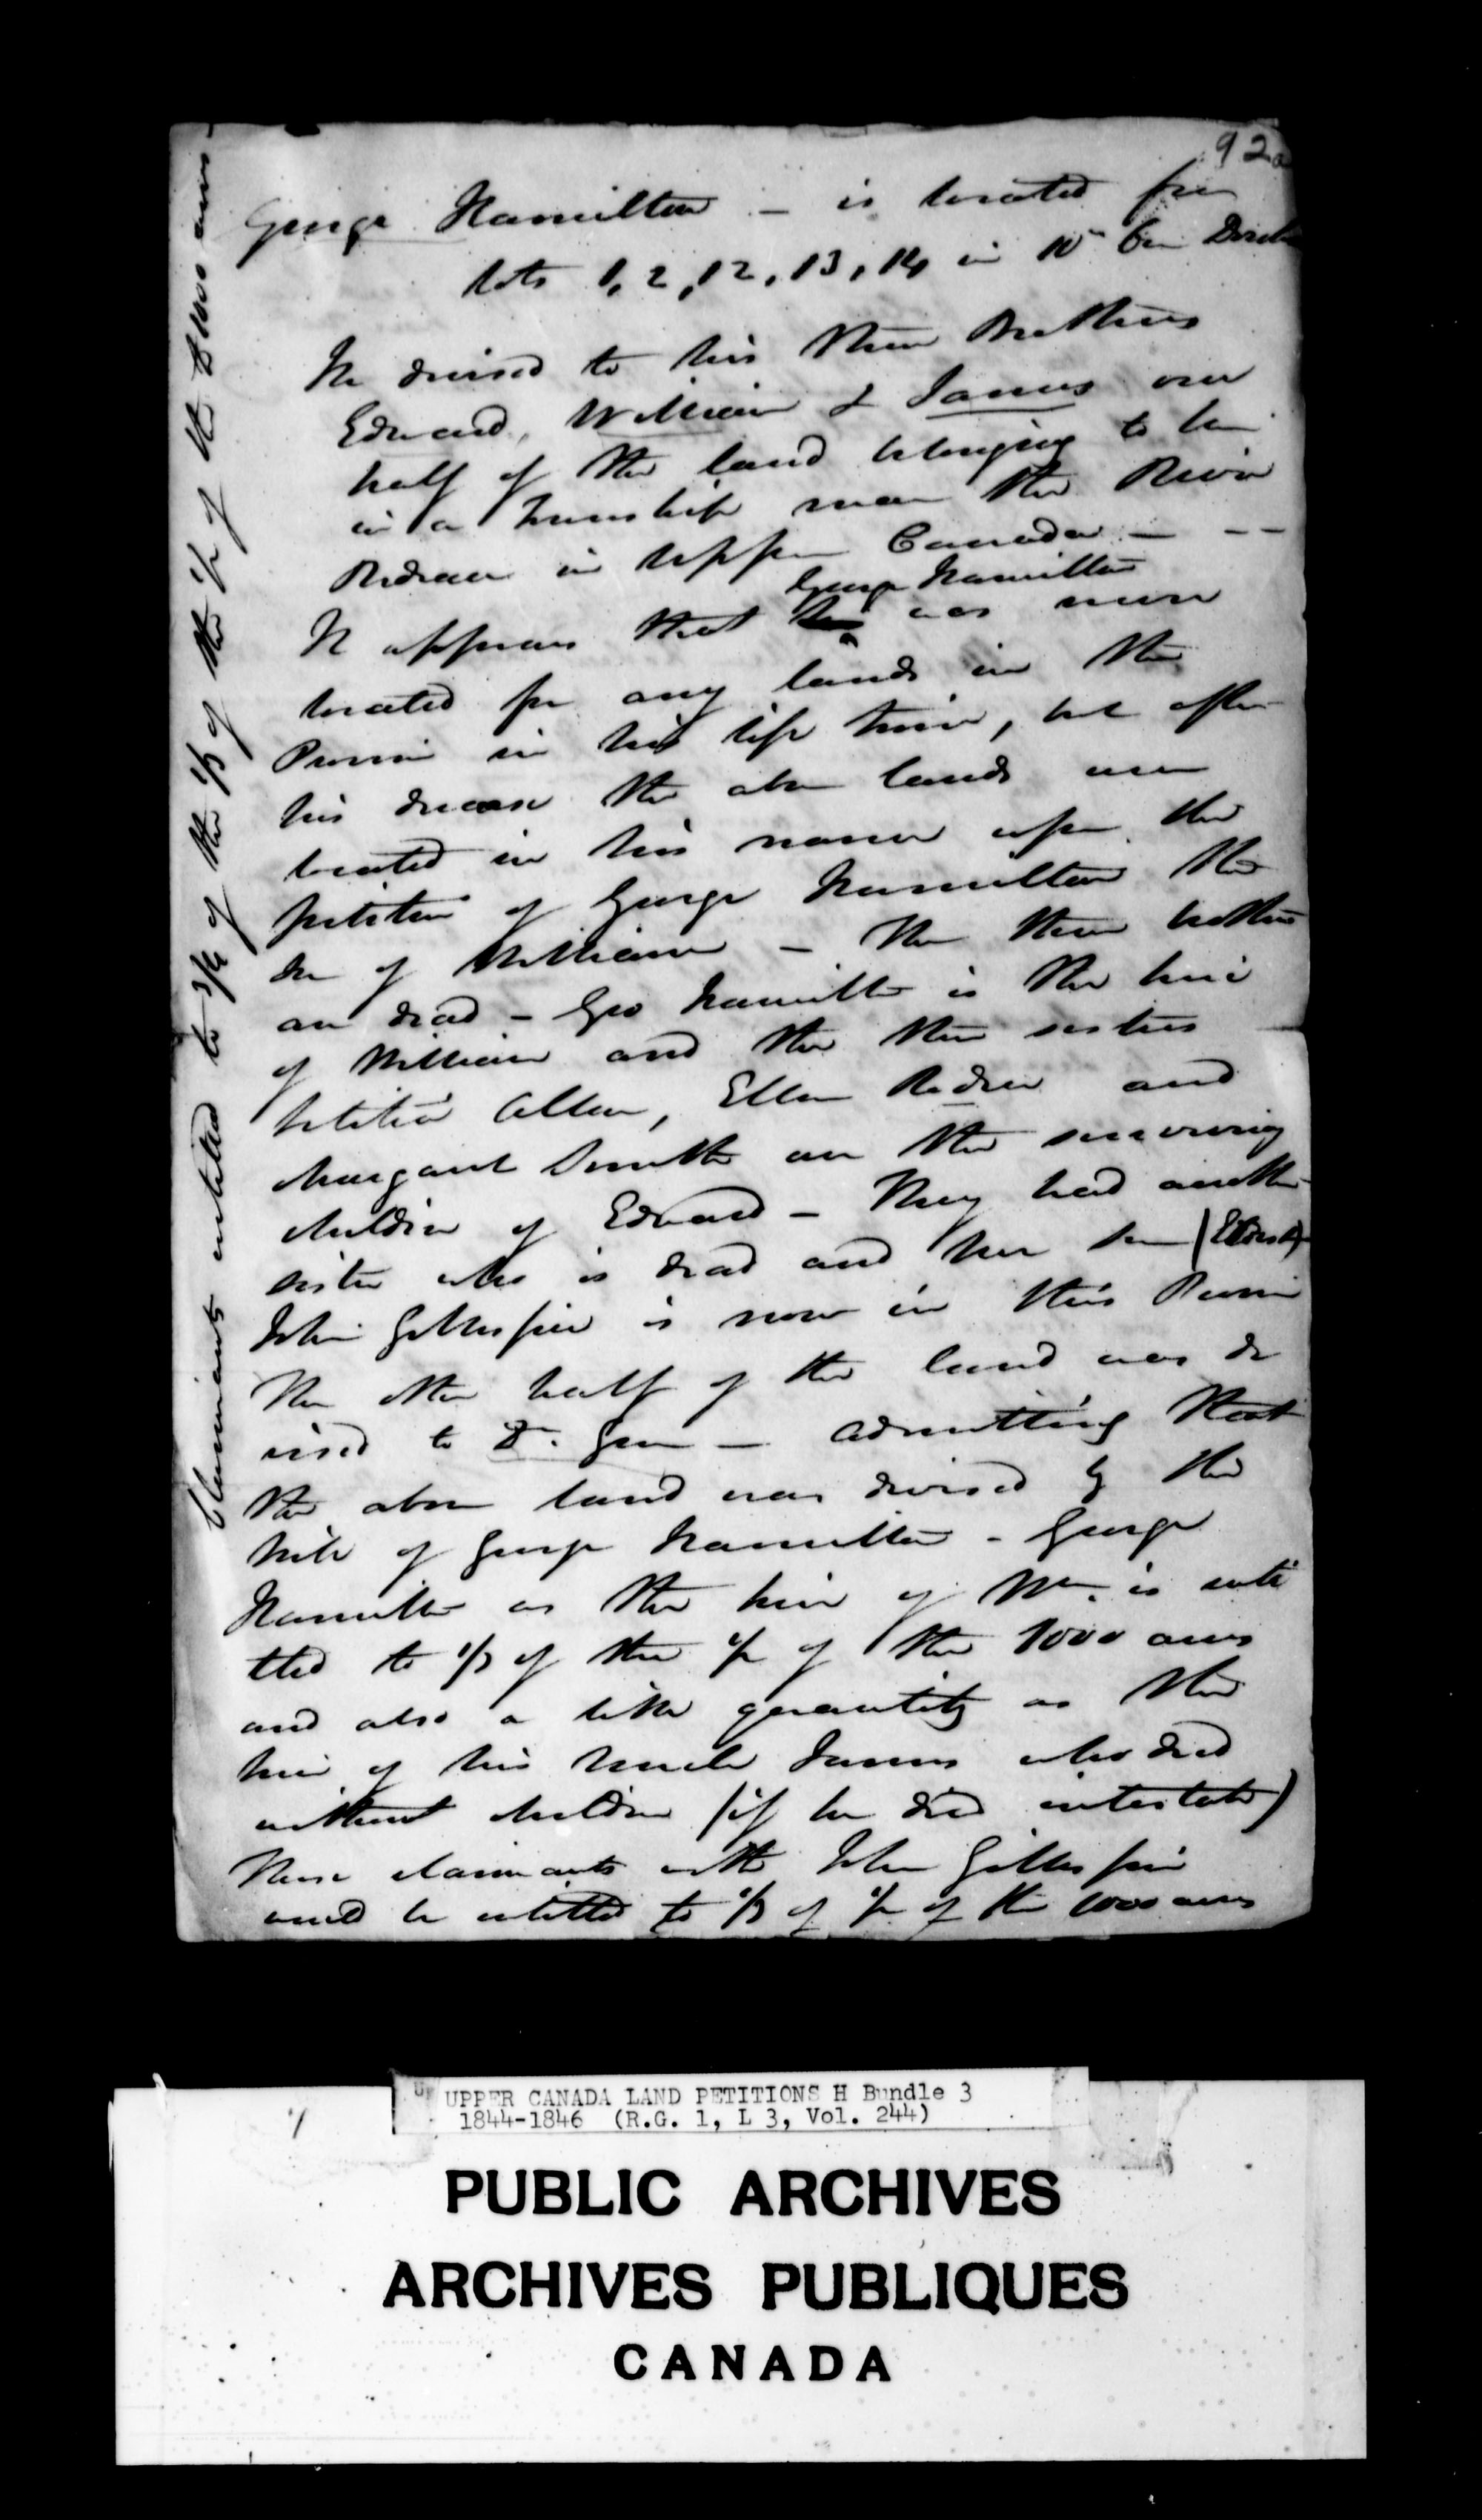 92a
George Hamilton – is located for
Lots 1, 2, 12, 13, 14 in 10th Con
He devised to his three Brothers
Edward, William & James one
half of the land belonging to him
in a Township near the River
Rideau in Upper Canada – – –
George Hamilton
It appears that he was never
located for any lands in the
Province in his life time, but after
his decease the above lands were
located in his name upon the
petition of George Hamilton the
son of William – The three brothers
are dead – Geo Hamilton is the heir
of William and the three sisters
Allen, Ellen and
Margaret Smith are the surviving
children of Edward – They had another
sister who is dead and her son (Eldest)
John Gillespie is now in this Province
The other half of the land was de
vised to Dr. – Admitting that
the above land was devised by the
Will of George Hamilton – George
Hamilton as the heir of Wm. is enti
tled to 1/3 of the 1/2 of the 1000 acres
and also a like quantity as the
heir of his Uncle James who died
without children (if he died intestate)
These claimants with John Gillespie
would be entitled to 1/3 of 1/2 of the 1000 acres
Claimants entitled to 3/4 of the 1/3 of the 1/2 of the 1000 acres
UPPER CANADA LAND PETITIONS H Bundle 3
1844-1846 (R.G. 1, L 3, Vol. 244)
PUBLIC ARCHIVES
ARCHIVES PUBLIQUES
CANADA